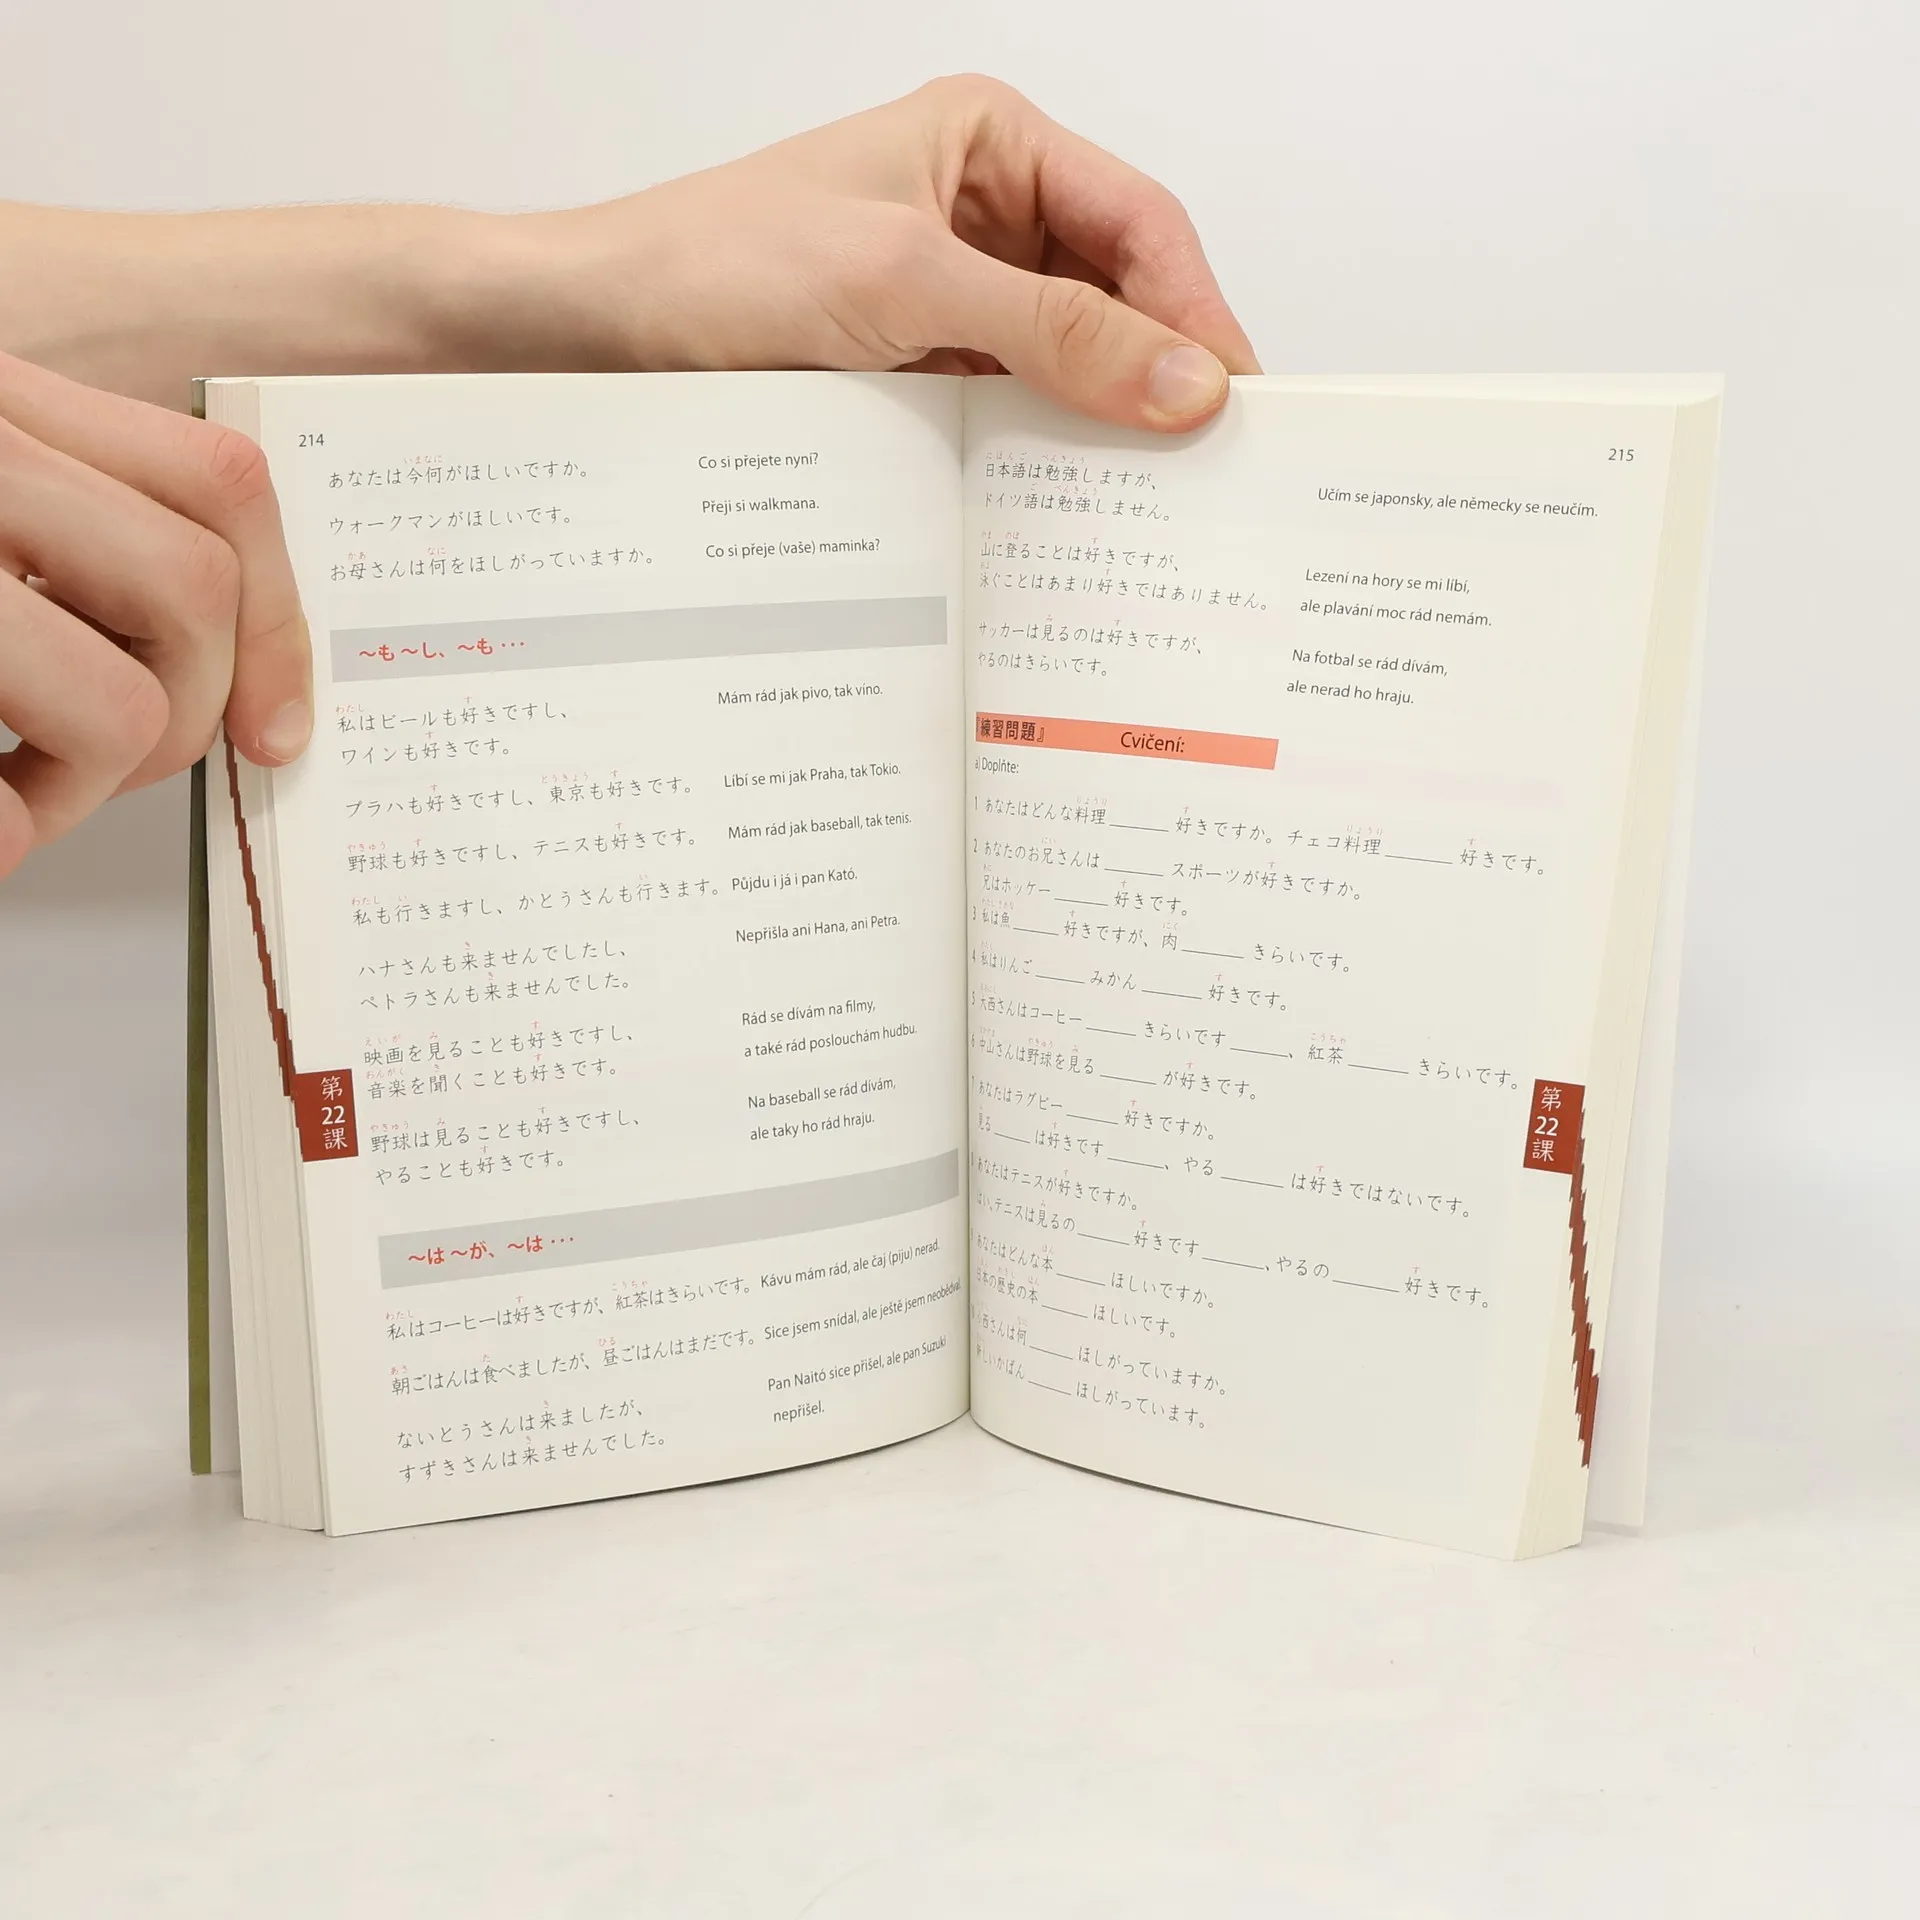 214
あなたは今何がほしいですか。 Co si přejete nyní?
ウォークマンがほしいです。 Přeji si walkmana.
お母さんは何をほしがっていますか。 Co si přeje (vaše) maminka?
～も～し、～も…
私はビールも好きですし、 Mám rád jak pivo, tak víno.
ワインも好きです。
プラハも好きですし、東京も好きです。 Líbí se mi jak Praha, tak Tokio.
野球も好きですし、テニスも好きです。 Mám rád jak baseball, tak tenis.
私も行きますし、かとうさんも行きます。 Půjdu i já i pan Kató.
ハナさんも来ませんでしたし、 Nepřišla ani Hana, ani Petra.
ペトラさんも来ませんでした。
映画を見ることも好きですし、 Rád se dívám na filmy,
音楽を聞くことも好きです。 a také rád poslouchám hudbu.
野球は見ることも好きですし、 Na baseball se rád dívám,
やることも好きです。 ale taky ho rád hraju.
第
22
課
～は～が、～は…
私はコーヒーは好きですが、紅茶はきらいです。 Kávu mám rád, ale čaj (piju) nerad.
朝ごはんは食べましたが、昼ごはんはまだです。 Sice jsem snídal, ale ještě jsem neobědval.
ないとうさんは来ましたが、 Pan Naitó sice přišel, ale pan Suzuki
すずきさんは来ませんでした。 nepřišel.
215
日本語は勉強しますが、 Učím se japonsky, ale německy se neučím.
ドイツ語は勉強しません。
山に登ることは好きですが、 Lezení na hory se mi líbí,
泳ぐことはあまり好きではありません。 ale plavání moc rád nemám.
サッカーは見るのは好きですが、 Na fotbal se rád dívám,
やるのはきらいです。 ale nerad ho hraju.
『練習問題』 Cvičení:
a) Doplňte:
1 あなたはどんな料理______好きですか。チェコ料理______好きです。
2 あなたのお兄さんは______スポーツが好きですか。
兄はホッケー______好きです。
3 私は魚______好きですが、肉______きらいです。
4 私はりんご______みかん______好きです。
5 大西さんはコーヒー______きらいです______、紅茶______きらいです。
6 中山さんは野球を見る______が好きです。
7 あなたはラグビー______好きですか。
見る______は好きです______、やる______は好きではないです。
8 あなたはテニスが好きですか。
はい、テニスは見るの______好きです______、やるの______好きです。
9 あなたはどんな本______ほしいですか。
日本の歴史の本______ほしいです。
10 小西さんは何______ほしがっていますか。
新しいかばん______ほしがっています。
第
22
課